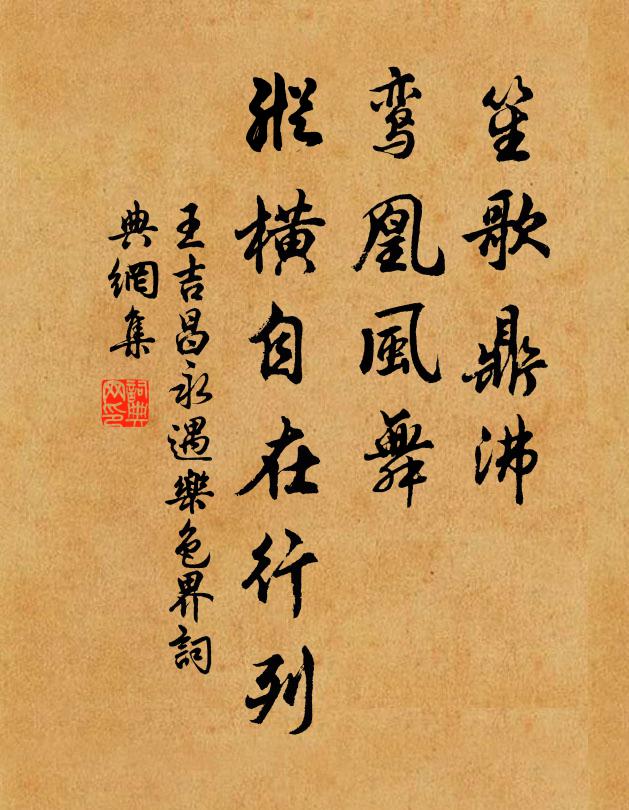 笙歌鼎沸
鸾凰風舞
縱横自在行列
王吉昌永遇樂色界詞
典網集
詞典
网印